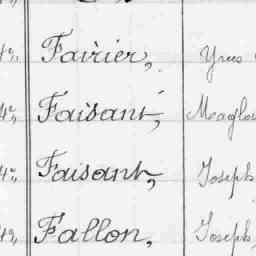 4e,, Favrier, Yves
4e,, Faisant, Maglo
4e,, Faisant, Joseph
4e,, Fallon, Joseph